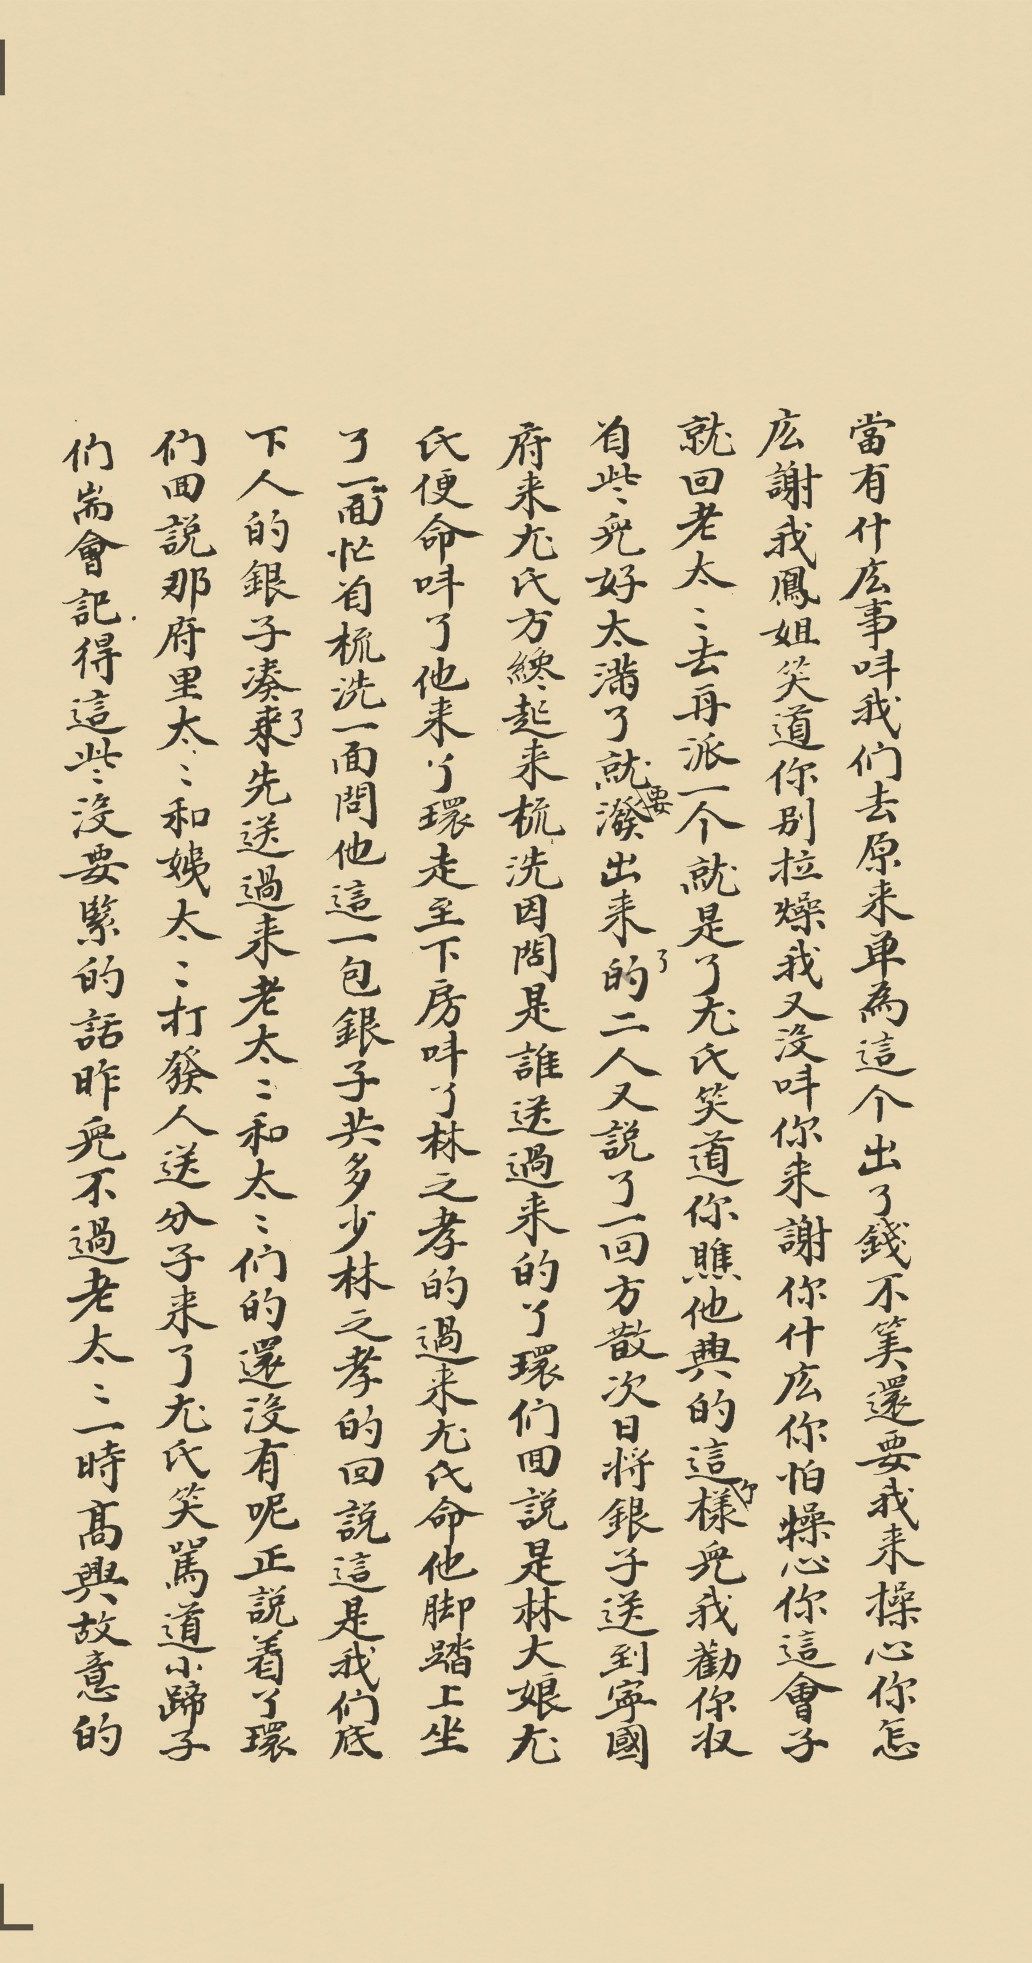 當有什庅事呌我们去原来单為這个出了錢不筭還要我来操心你怎
庅謝我鳳姐笑道你别拉燥我又没呌你来謝你什庅你怕操心你這會子
就回老太〻去再派一个就是了尤氏笑道你瞧他興的這樣你兒我勸你収
着些〻兒好太滿了就要潑出来的了二人又説了一回方散次日将銀子送到寧國
府来尤氏方纔〻起来梳洗因問是誰送過来的丫環们回説是林大娘尤
氏便命呌了他来丫環走至下房呌丫林之孝的過来尤氏命他脚踏上坐
了一面忙着梳洗一面問他這一包銀子共多少林之孝的回説這是我们底
下人的銀子凑来了先送過来老太〻和太〻们的還没有呢正説着丫環
们回説那府里太〻和姨太〻打發人送分子来了尤氏笑駡道小蹄子
们耑會記得這些〻没要緊的話昨兒不過老太〻一時髙興故意的